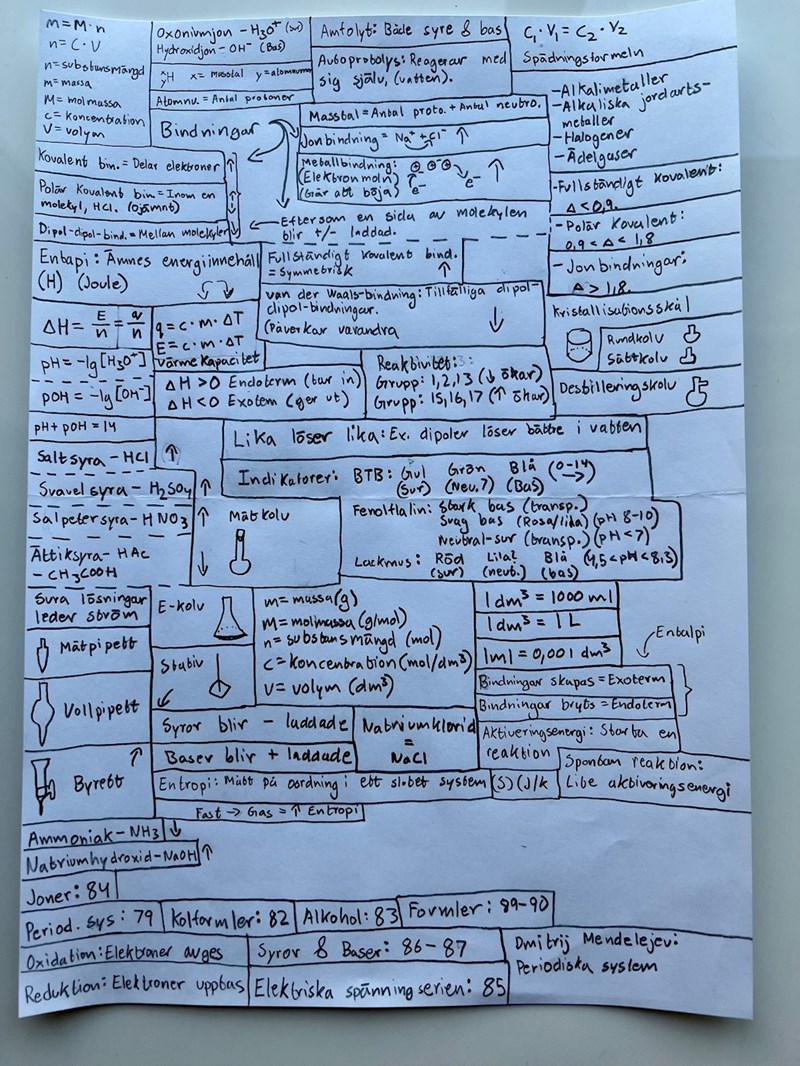 m=M·n
n=C·V
n=substansmängd
m=massa
M=molmassa
c=koncentration
V=volym
Oxoniumjon - H₃O⁺ (sur)
Hydroxidjon - OH⁻ (Bas)
x= masstal y=atomnummer
Atomnu. = Antal protoner
Amfolyt: Både syre & bas
Autoprotolys: Reagerar med
sig själv, (vatten).
C₁·V₁=C₂·V₂
Spädningsformeln
Masstal=Antal proto.+Antal neutro.
-Alkalimetaller
-Alkaliska jordarts-
metaller
-Halogener
-Ädelgaser
Bindningar
Jonbindning= Na⁺ + Cl⁻ ↑
Metallbindning: ⊕⊖⊕
(Elektronmoln) e⁻ e⁻ ↑
(Går att böja)
Kovalent bin.=Delar elektroner ↑
Polär kovalent bin=Inom en
molekyl, HCl. (ojämnt)
Dipol-dipol-bind.=Mellan molekyler
←Eftersom en sida av molekylen
blir +/- laddad.
-Fullständigt kovalent:
Δ<0,9.
-Polär kovalent:
0,9<Δ<1,8
-Jonbindningar:
Δ>1,8.
Entapi: Ämnes energiinnehåll
(H) (Joule)
Fullständigt kovalent bind.
=Symmetrisk ↑
van der Waals-bindning: Tillfälliga dipol-
dipol-bindningar.
(Påverkar varandra ↓
Kristallisationsskål
Rundkolv
Sättkolv
Destilleringskolv
ΔH=E/n=q/n
q=c·m·ΔT
E=c·m·ΔT
värmekapacitet
pH=-lg[H₃O⁺]
pOH=-lg[OH⁻]
pH+pOH=14
ΔH>0 Endoterm (tar in)
ΔH<0 Exotem (ger ut)
Reaktivitet:
Grupp: 1,2,13 (↓ ökar)
Grupp: 15,16,17 (↑ ökar)
Lika löser lika: Ex. dipoler löser bättre i vatten
Saltsyra-HCl ↑
Svavelsyra-H₂SO₄ ↑
Salpetersyra-HNO₃ ↑
Ättiksyra-HAc ↓
-CH₃COOH
Indikatorer: BTB: Gul Grön Blå (0-14)
(Sur) (Neu.7) (Bas) →
Mätkolv
Fenolftalin: Stark bas (transp.)
Svag bas (Rosa/lila) (pH 8-10)
Neutral-sur (transp.) (pH<7)
Lackmus: Röd Lila? Blå (4,5<pH<8,3)
(sur) (neut.) (bas)
Sura lösningar
leder ström
Mätpipett
Vollpipett
Byrett ↑
E-kolv
Stativ
m=massa(g)
M=molmassa (g/mol)
n=substansmängd (mol)
c=koncentration(mol/dm³)
V=volym (dm³)
1 dm³=1000 ml
1dm³=1L
1ml=0,001 dm³
Entalpi
Bindningar skapas=Exoterm
Bindningar bryts=Endoterm
Aktiveringsenergi: Starta en
reaktion
Spontan reaktion:
Lite aktiveringsenergi
Syror blir - laddade
Baser blir + laddade
Natriumklorid
=
NaCl
Entropi: Mått på oordning i ett slutet system (S)(J/k)
Fast → Gas = ↑ Entropi
Ammoniak-NH₃ ↓
Natriumhydroxid-NaOH ↑
Joner: 84
Period. sys: 79
Kolformler: 82
Alkohol: 83
Formler: 89-90
Oxidation: Elektroner avges
Syror & Baser: 86-87
Dmitrij Mendelejev:
Periodiska system
Reduktion: Elektroner upptas
Elektriska spänningserien: 85